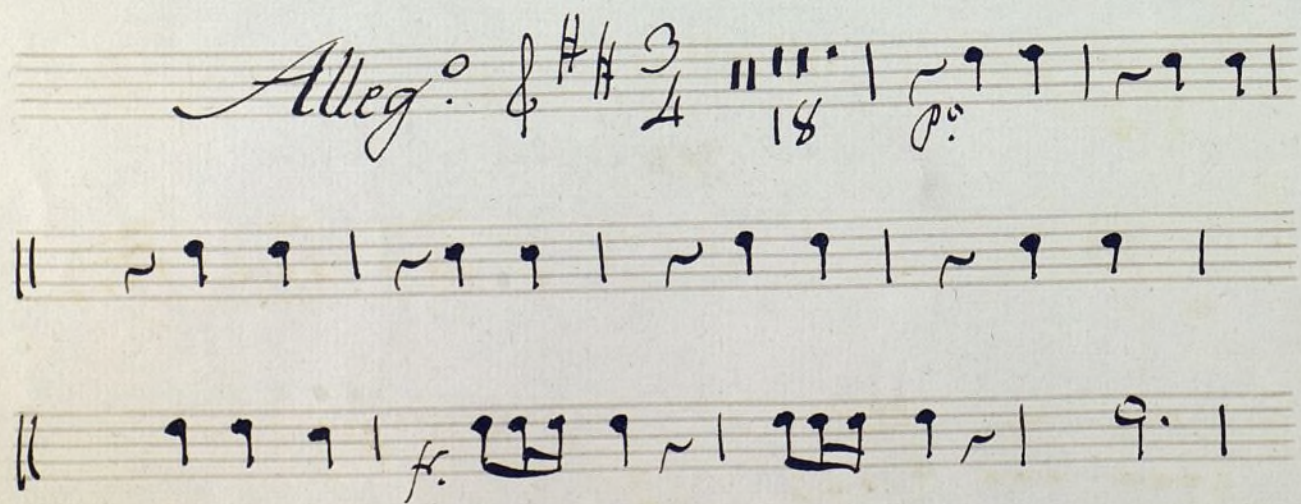 Allegº. 3/4
18 pº.
f.